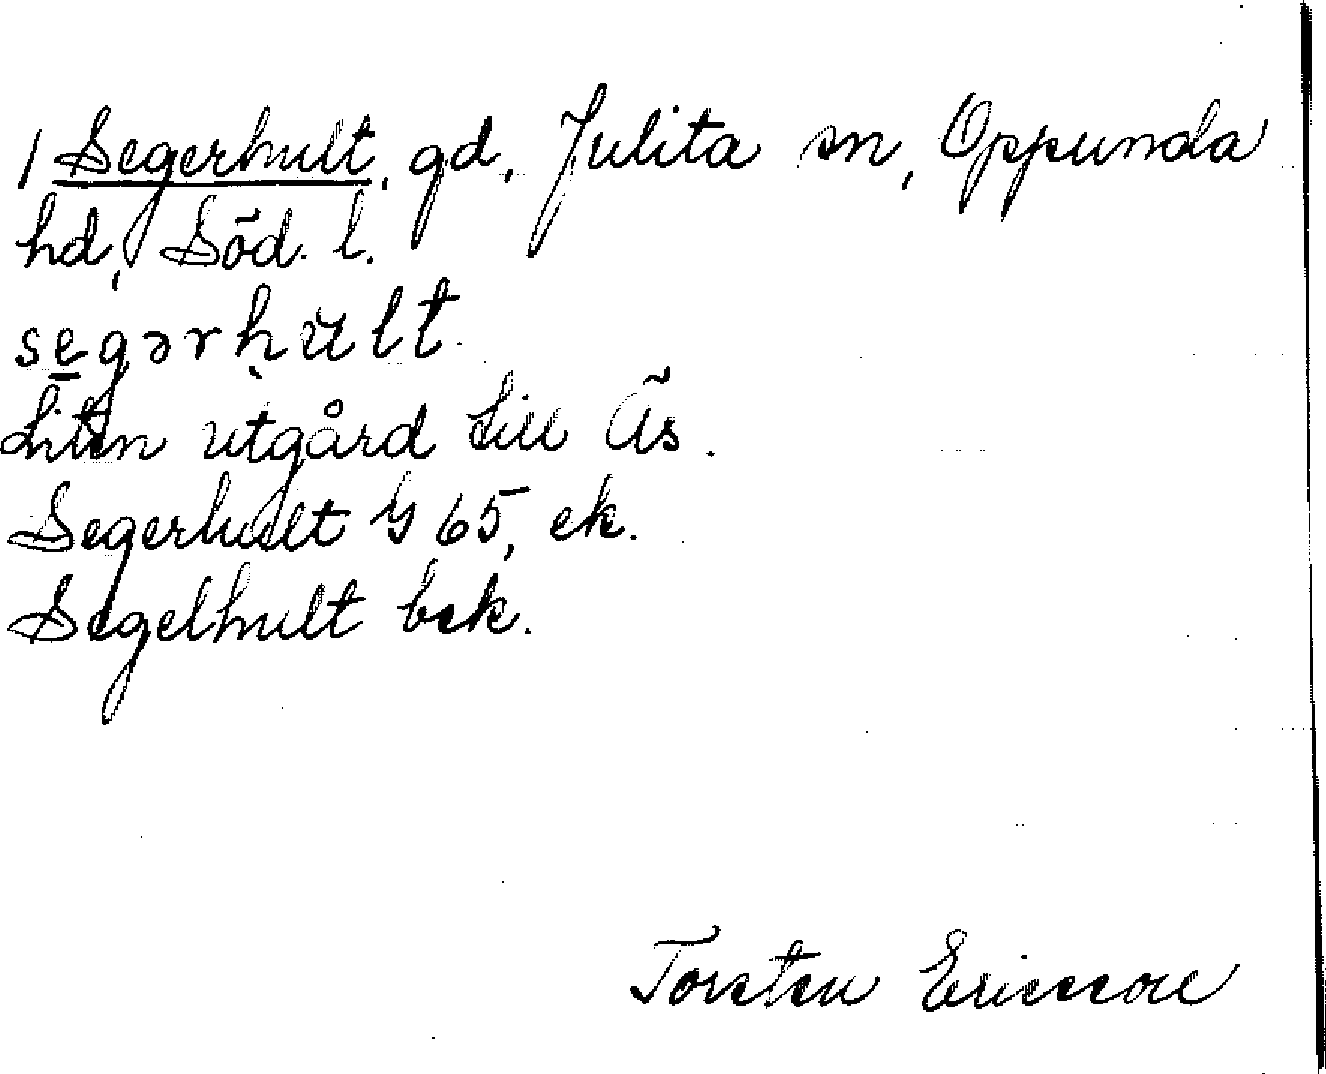 1 Segerhult, gd, Julita sn, Oppunda
hd, Söd. l.
segərhult.
Liten utgård till Äs.
Segerhult G 65, ek.
Segelhult bek.
Torsten Ericsson